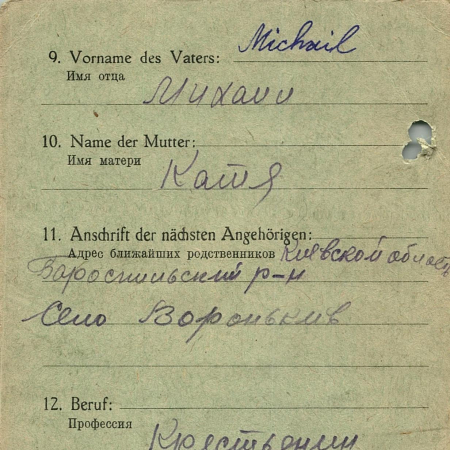 9. Vorname des Vaters: Michail
Имя отца
Михаил
10. Name der Mutter:
Имя матери
Катя
11. Anschrift der nächsten Angehörigen:
Адрес ближайших родственников Киевской область
Бароспильский р-н
Село Вороньkив
12. Beruf:
Профессия
Крестьянин